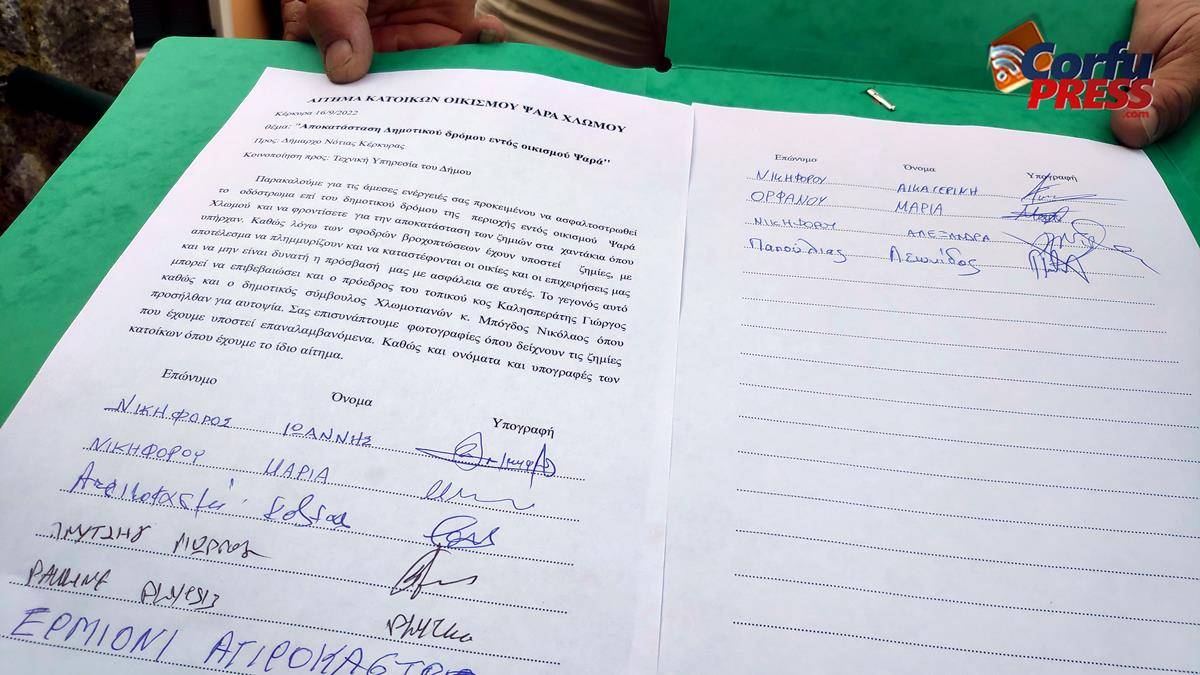 Corfu
PRESS
.com
ΑΙΤΗΜΑ ΚΑΤΟΙΚΩΝ ΟΙΚΙΣΜΟΥ ΨΑΡΑ ΧΛΩΜΟΥ
Κέρκυρα 16/9/2022
θέμα: "Αποκατάσταση Δημοτικού δρόμου εντός οικισμού Ψαρά"
Προς: Δήμαρχο Νότιας Κέρκυρας
Κοινοποίηση προς: Τεχνική Υπηρεσία του Δήμου
Παρακαλούμε για τις άμεσες ενέργειές σας προκειμένου να ασφαλτοστρωθεί
το οδόστρωμα επί του δημοτικού δρόμου της περιοχής εντός οικισμού Ψαρά
Χλωμού και να φροντίσετε για την αποκατάσταση των ζημιών στα χαντάκια όπου
υπήρχαν. Καθώς λόγω των σφοδρών βροχοπτώσεων έχουν υποστεί ζημίες, με
αποτέλεσμα να πλημμυρίζουν και να καταστέφονται οι οικίες και οι επιχειρήσεις μας
και να μην είναι δυνατή η πρόσβασή μας με ασφάλεια σε αυτές. Το γεγονός αυτό
μπορεί να επιβεβαιώσει και ο πρόεδρος του τοπικού κος Καλησπεράτης Γιώργος
καθώς και ο δημοτικός σύμβουλος Χλωμοτιανών κ. Μπόγδος Νικόλαος όπου
προσήλθαν για αυτοψία. Σας επισυνάπτουμε φωτογραφίες όπου δείχνουν τις ζημίες
που έχουμε υποστεί επαναλαμβανόμενα. Καθώς και ονόματα και υπογραφές των
κατοίκων όπου έχουμε το ίδιο αίτημα.
Επώνυμο Όνομα Υπογραφή
ΝΙΚΗΦΟΡΟΣ ΙΩΑΝΝΗΣ
ΝΙΚΗΦΟΡΟΥ ΜΑΡΙΑ
PAULINE
ΕΡΜΙΟΝΙ
Επώνυμο Όνομα Υπογραφή
ΝΙΚΗΦΟΡΟΥ ΑΙΚΑΤΕΡΙΝΗ
ΟΡΦΑΝΟΥ ΜΑΡΙΑ
ΝΙΚΗΦΟΡΟΥ ΑΛΕΞΑΝΔΡΑ
Παπούλιας Λεωνίδας